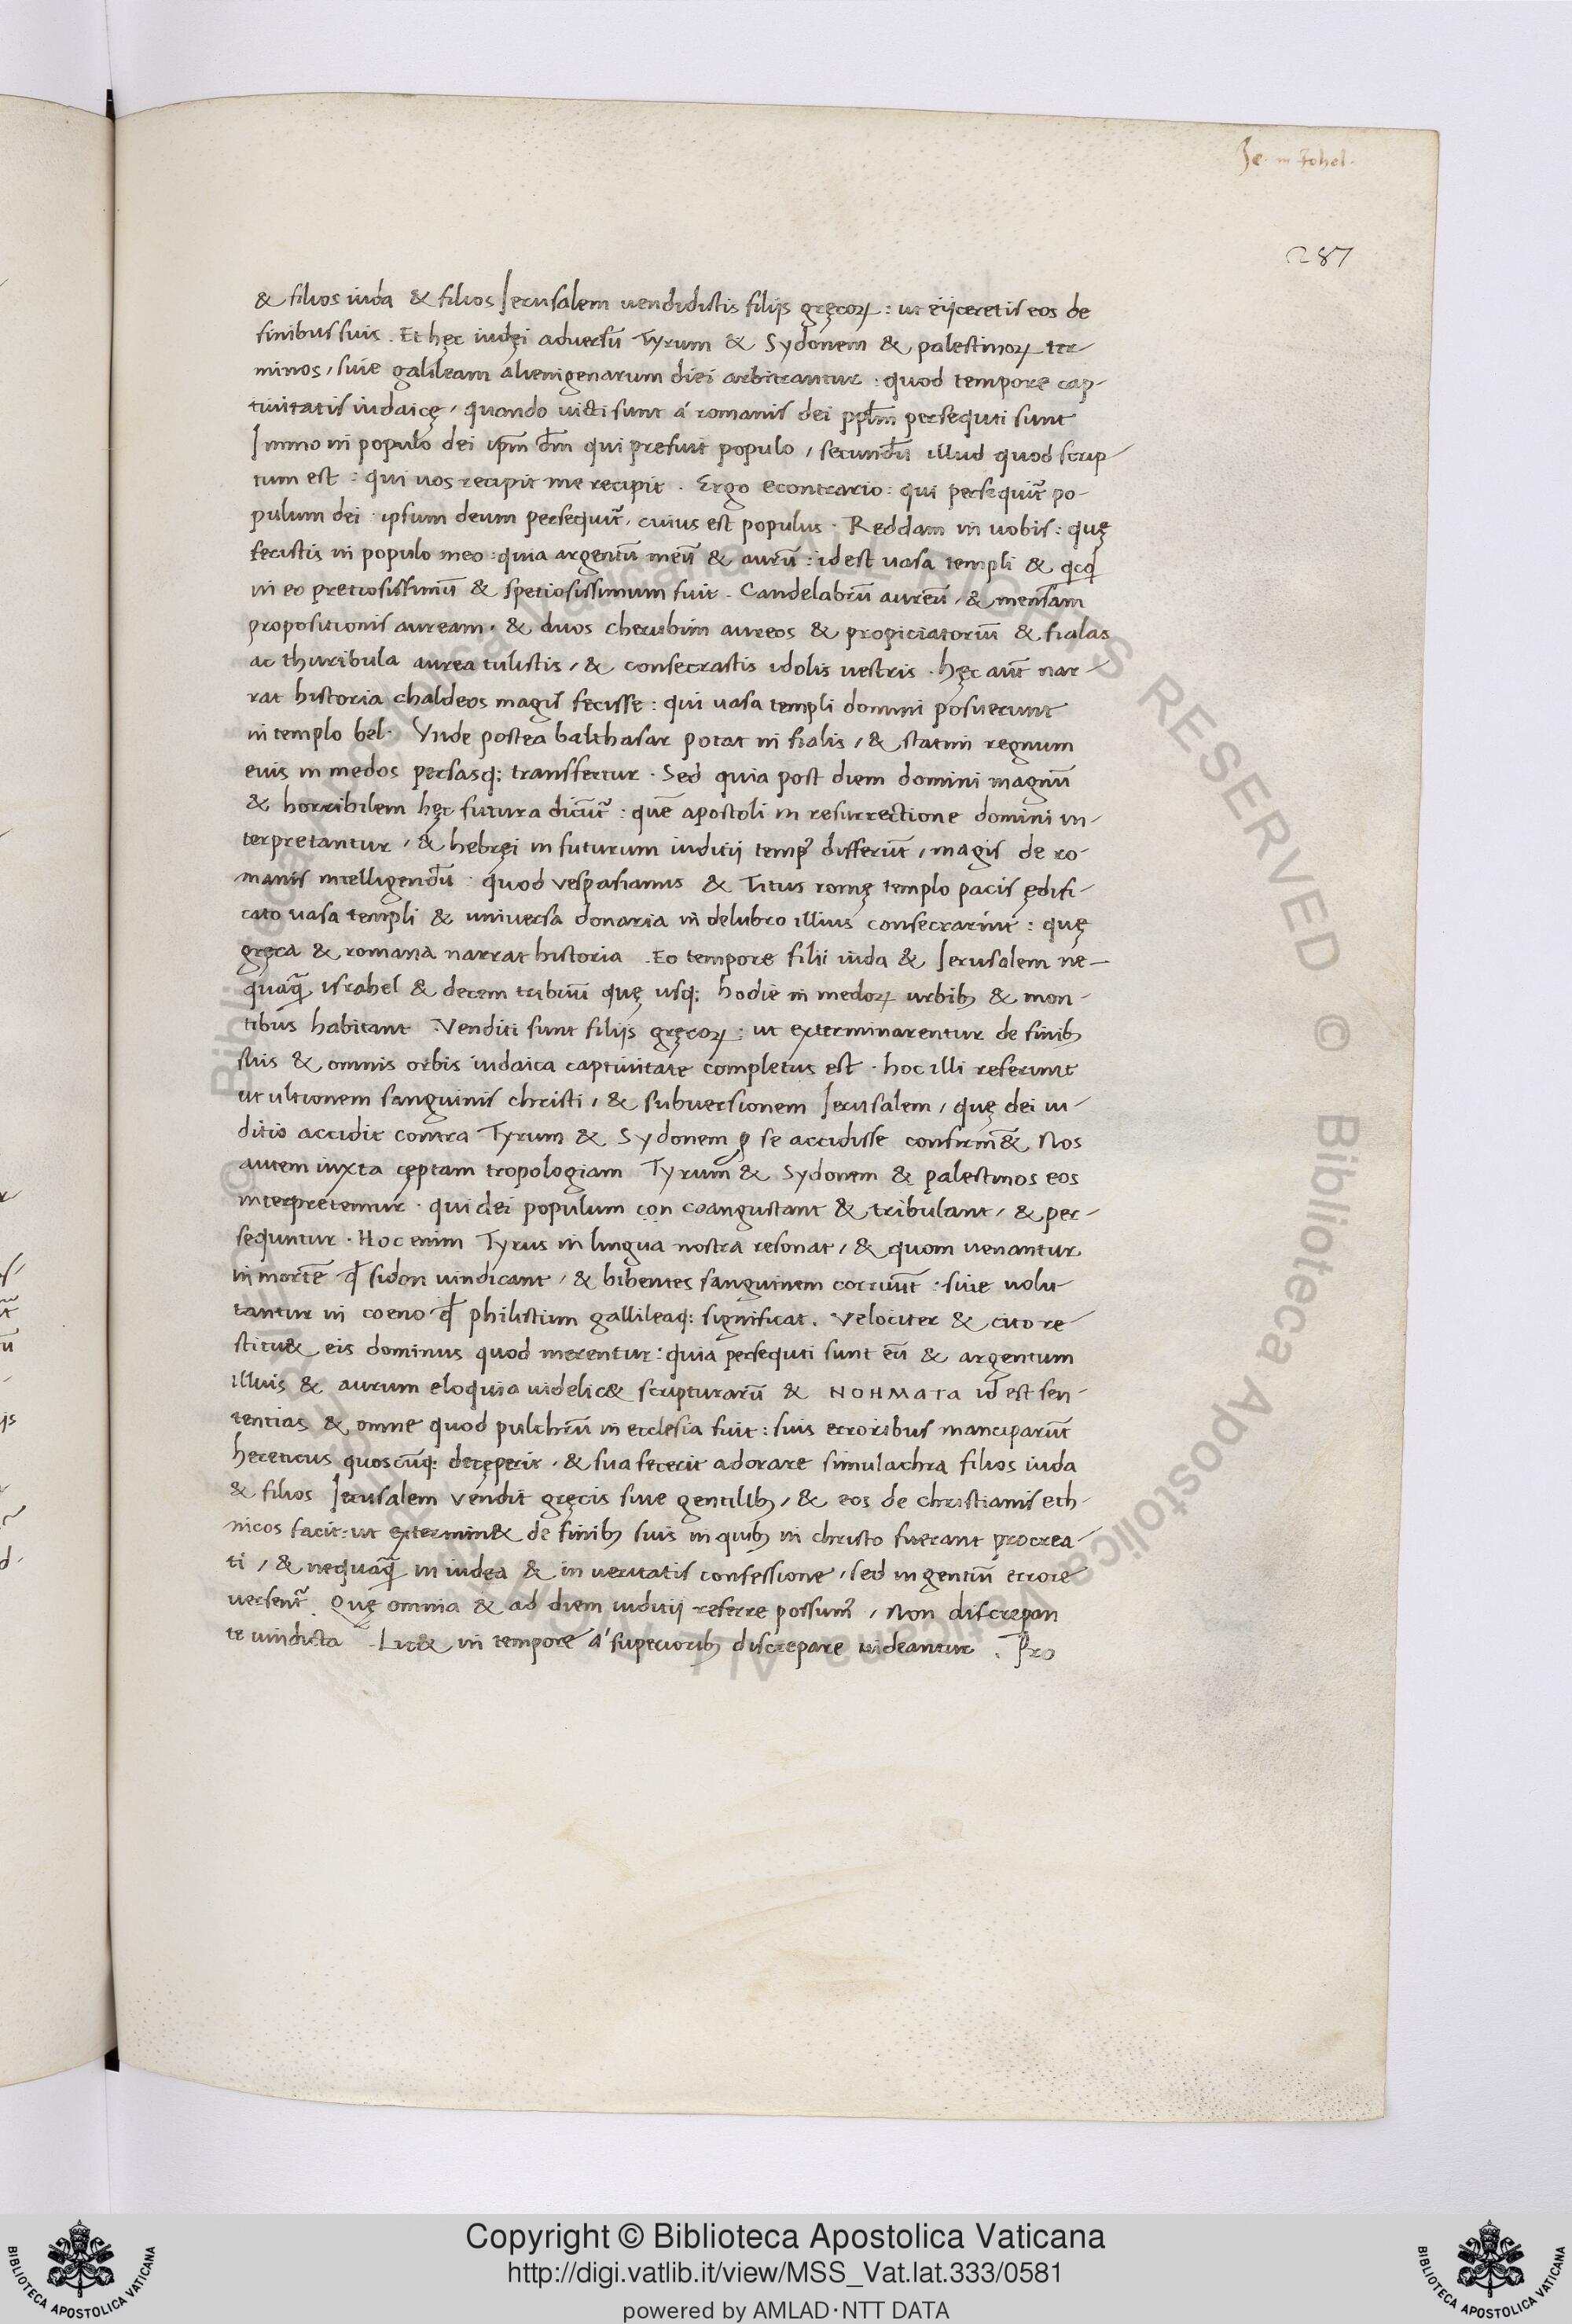 Je. in Johel.
287
& filios iuda & filios Jerusalem uendidistis filijs gręcoꝝ : ut eijceretis eos de
finibus suis . Et hęc iudęi aduersū Tyrum & Sydonem & palestinoꝝ ter-
minos, siue galileam alienigenarum dici arbitrantur : quod tempore cap-
tiuitatis iudaicę, quando uicti sunt á romanis dei pplm̄ persequti sunt
Immo in populo dei ip̄m dm̄ qui prefuit populo, secundū illud quod scrip-
tum est : qui uos recipit me recipit . Ergo econtrario : qui persequit̄ po-
pulum dei ipsum deum persequit̄, cuius est populus . Reddam in uobis : quę
fecistis in populo meo : quia argentū meū & aurū : id est uasa templi & qcq̄
in eo pretiosissimū & spetiosissimum fuit . Candelabrū aureū, & mensam
propositionis auream, & duos cherubim aureos & propiciatoriū & fialas
ac thuribula aurea tulistis, & consecrastis idolis uestris . hęc aūt nar-
rat historia chaldeos magis fecisse : qui uasa templi domini posuerunt
in templo bel . Vnde postea balthasar potat in fialis, & statim regnum
euis in medos persasq; transfertur . Sed quia post diem domini magnū
& horribilem hęc futura dicūt̄ : quē apostoli in resurrectione domini in-
terpretantur, & hebręi in futurum iuditij temp᾿ differūt, magis de ro-
manis intelligendū quod vespasianus & Titus romę templo pacis ędifi-
cato uasa templi & uniuersa donaria in delubro illius consecrarint : quę
gręca & romana narrat historia . Eo tempore filii iuda & Jerusalem ne-
quaq̄ israhel & decem tribuū quę usq; hodie in medoꝝ urbib; & mon-
tibus habitant . Venditi sunt filijs gręcoꝝ : ut exterminarentur de finib;
suis & omnis orbis iudaica captiuitate completus est . hoc illi referunt
ut ultionem sanguinis christi, & subuersionem Jerusalem, quę dei iu-
ditio accidit contra Tyrum & Sydonem ꝓ se accidisse confirm& Nos
autem iuxta cęptam tropologiam Tyrum & Sydonem & palestinos eos
interpretemur . qui dei populum con coangustant & tribulant, & per-
sequntur . Hoc enim Tyrus in lingua nostra resonat, & quom uenantur
in mortē qđ sidon uindicant, & bibentes sanguinem corruūt . siue uolu-
tantur in coeno qđ philistiim gallileaq; significat . Velociter & cito re-
stitu& eis dominus quod merentur : quia persequti sunt eū & argentum
illius & aurum eloquia uidelic& scripturarū & NOHMATA id est sen-
tentias & omne quod pulchrū in ecclesia fuit : suis erroribus manciparūt
hereticus quoscūq; decęperit, & sua fecerit adorare simulachra filios iuda
& filios Jerusalem vendit gręcis siue gentilib;, & eos de christianis eth-
nicos facit : ut extermin& de finib; suis in quib; in christo fuerant procrea-
ti, & nequaq̄ in iudea & in ueritatis confessione, sed in gentiū errore
uersent̄ . Quę omnia & ad diem iuditij referre possum᾿, Non discrepan
te uindicta . Lic& in tempore á superiorib; discrepare uideantur . Pro
Copyright © Biblioteca Apostolica Vaticana
http://digi.vatlib.it/view/MSS_Vat.lat.333/0581
powered by AMLAD·NTT DATA